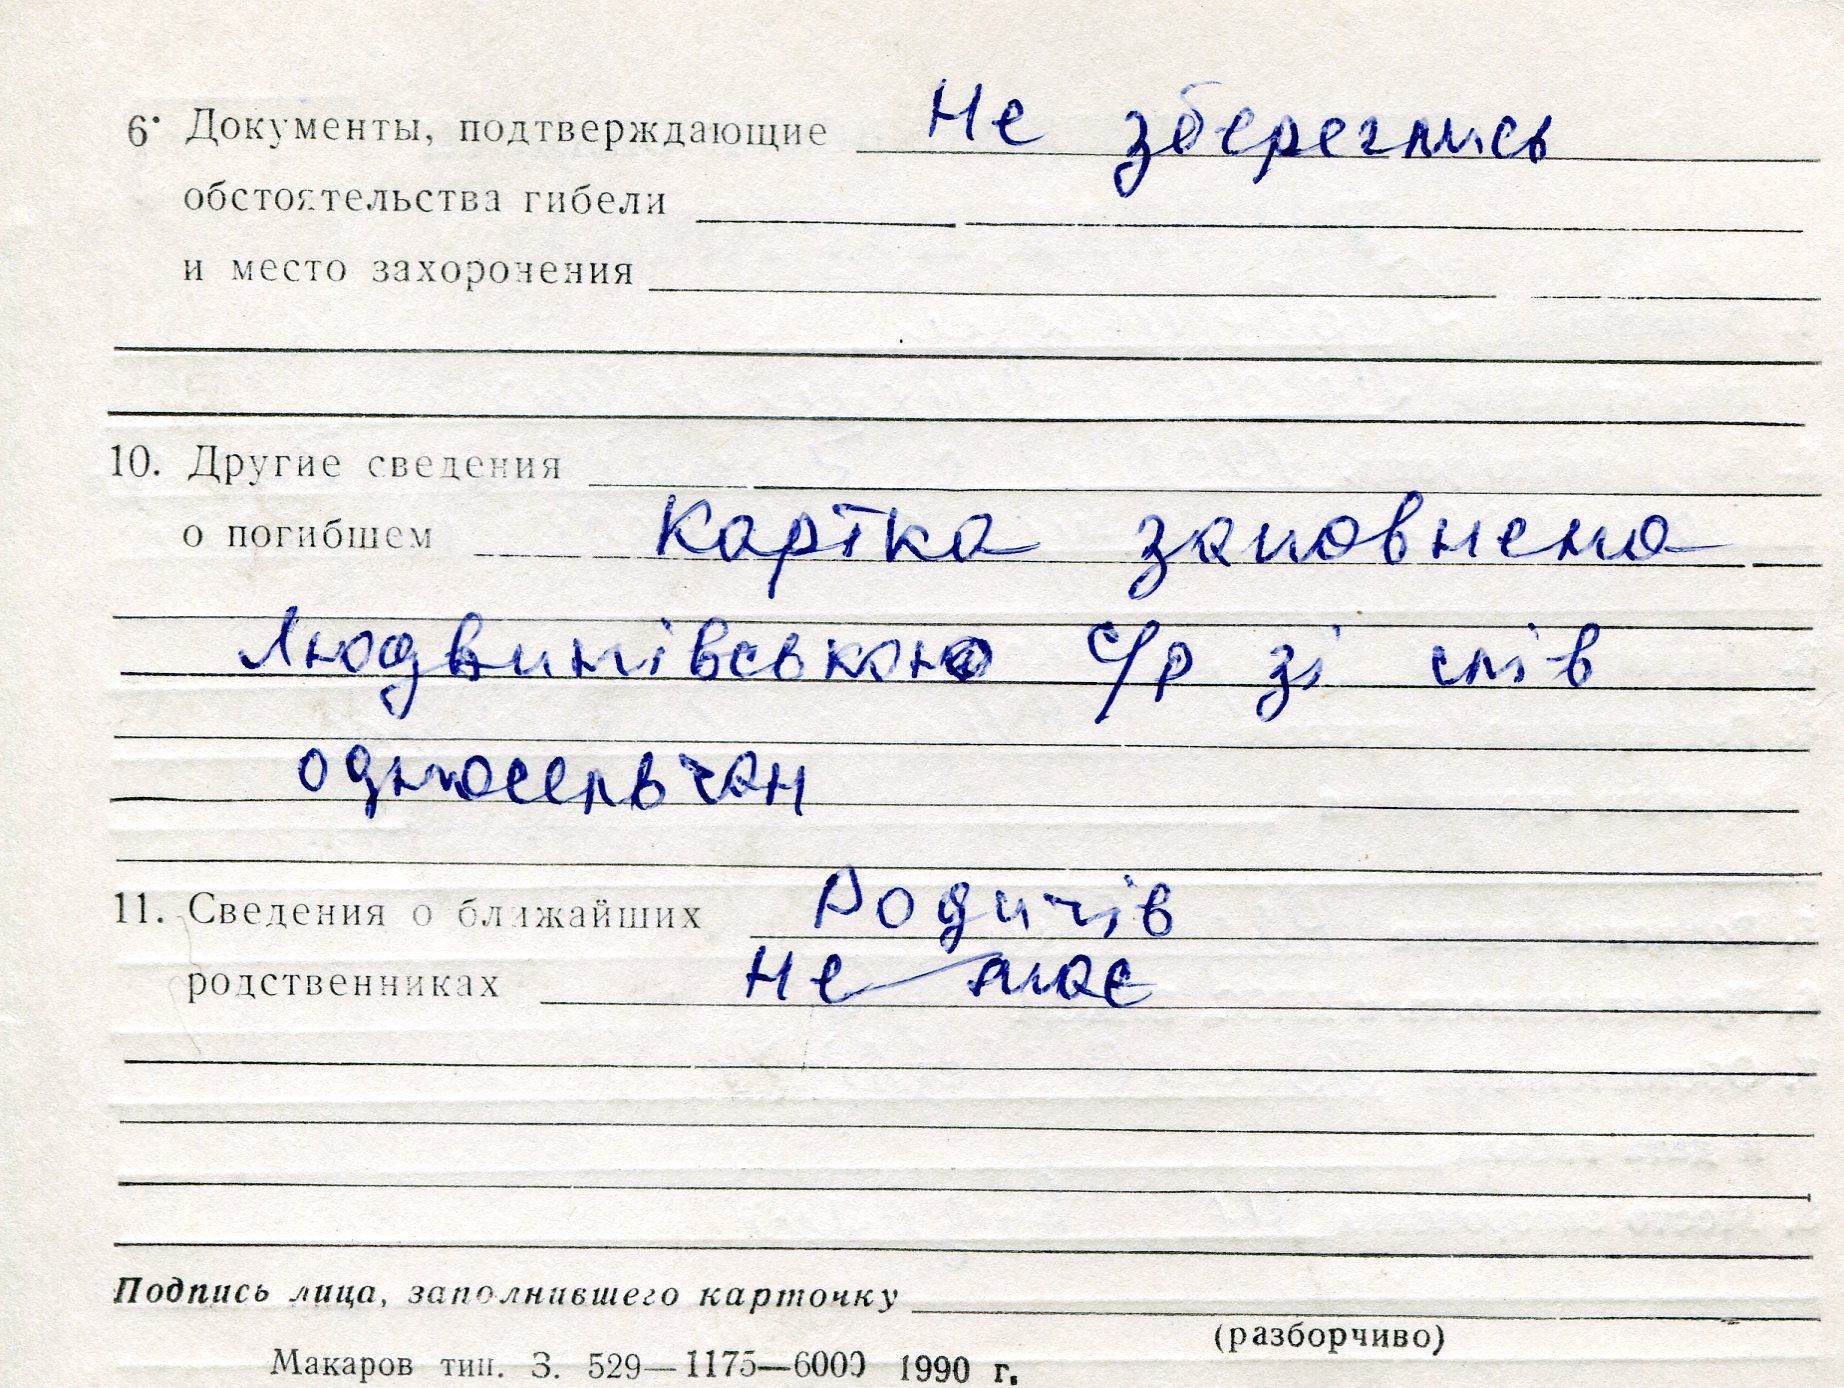 6. Документы, подтверждающие Не збереглись
обстоятельства гибели
и место захоронения
10. Другие сведения
о погибшем Картка заповнена
Людвинівською с/р зі слів
односельчан
11. Сведения о ближайших Родичів
родственниках не має
Подпись лица, заполнившего карточку
(разборчиво)
Макаров тип. З. 529—1175—6000 1990 г.